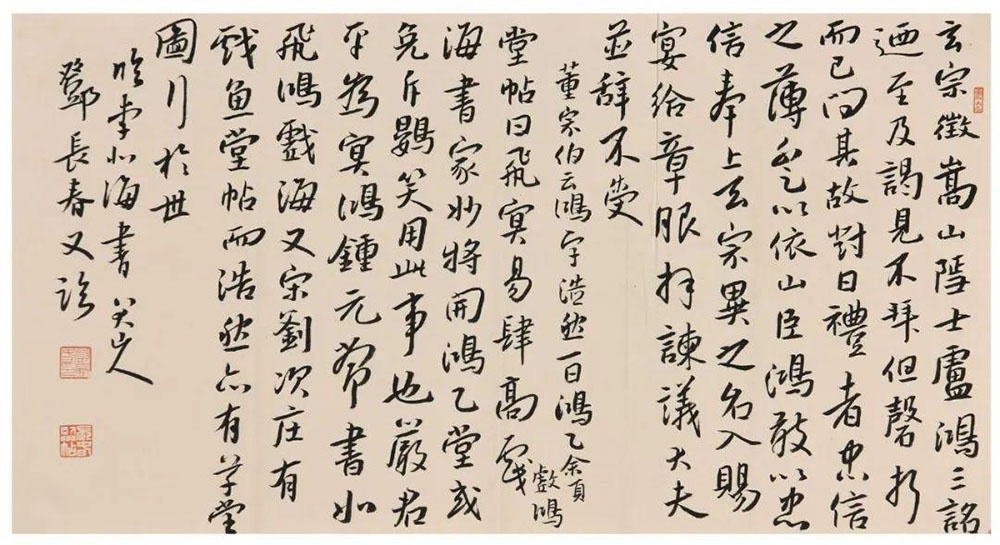 玄宗徵嵩山隱士盧鴻三詔
廼至及謁見不拜但磬折
而已問其故對曰禮者忠信
之薄不足以依山臣鴻敢以忠
信奉上玄宗異之召入賜
宴給章服拜諫議大夫
並辭不受
董宗伯云鴻字浩然一曰鴻乙余頁
戲鴻
堂帖曰飛冥易肆高
海書家妙將開鴻乙堂或
免斥鷃笑用此事也嚴君
平為冥鴻鍾元常書如
飛鴻戲海又宋劉次庄有
戲魚堂帖而浩然亦有草堂
圖行於世
臨李北海書 八大山人
鄧長春又臨